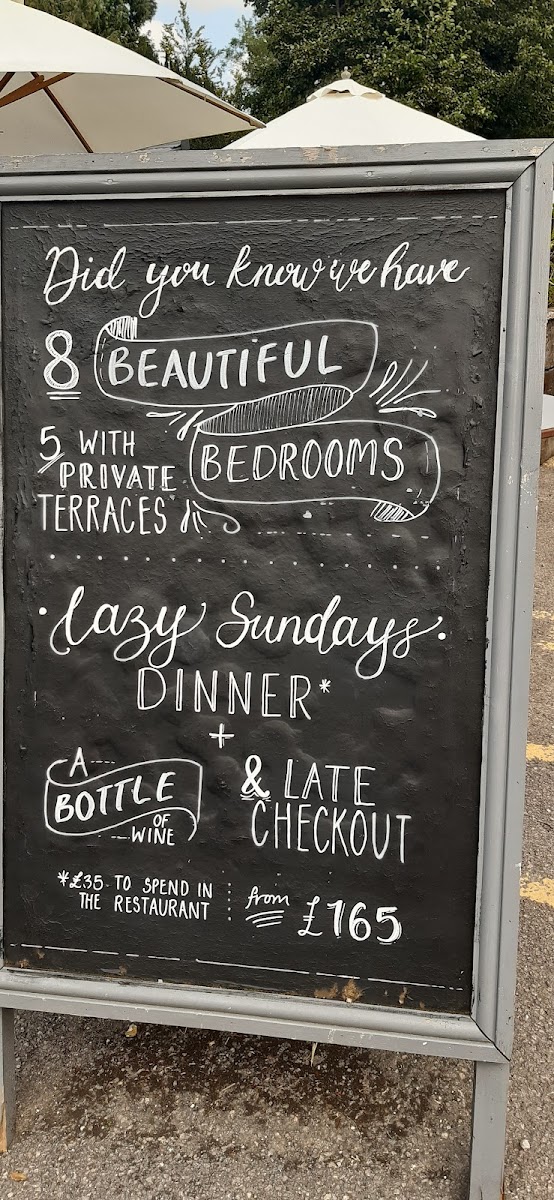 Did you know we have
8 BEAUTIFUL
BEDROOMS
5 WITH
PRIVATE
TERRACES
Lazy Sundays
DINNER*
+
A
BOTTLE
OF
WINE
& LATE
CHECKOUT
*£35 TO SPEND IN
THE RESTAURANT
from £165